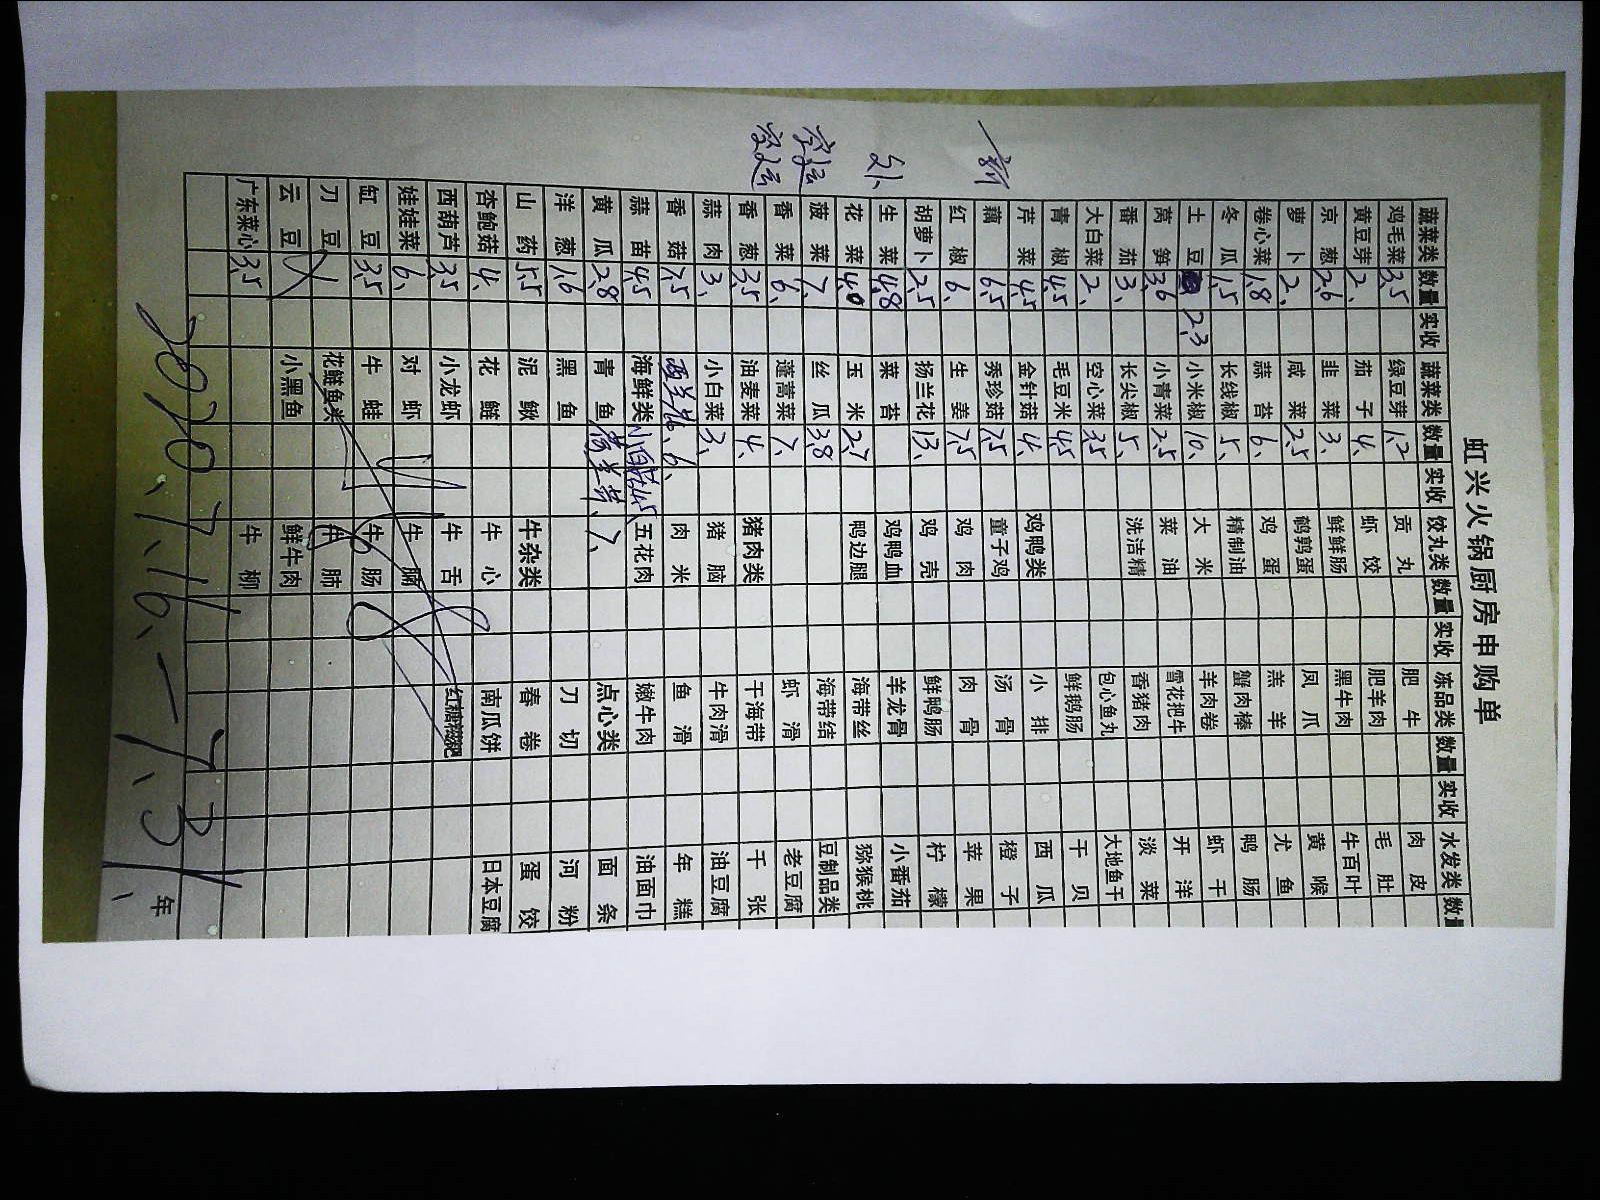 虹兴火锅厨房申购单
蔬菜类 数量 实收 蔬菜类 数量 实收 饺丸类 数量 实收 冻品类 数量 实收 水发类 数量
鸡毛菜 3.5 绿豆芽 1.2 贡丸 肥牛 肉皮
黄豆芽 2、 茄子 4、 虾饺 肥羊肉 毛肚
京葱 2.6 韭菜 3、 鲜鲜肠 黑牛肉 牛百叶
萝卜 2、 咸菜 2.5 鹌鹑蛋 凤爪 黄喉
卷心菜 1.8 蒜苔 6、 鸡蛋 羔羊 尤鱼
冬瓜 1.5 长线椒 5、 精制油 蟹肉棒 鸭肠
土豆 2.3 小米椒 10、 大米 羊肉卷 虾干
莴笋 3.6 小青菜 2.5 菜油 雪花把牛 开洋
番茄 3、 长尖椒 5、 洗洁精 香猪肉 淡菜
大白菜 2、 空心菜 3.5 包心鱼丸 大地鱼干
青椒 4.5 毛豆米 4.5 鲜鹅肠 干贝
芹菜 4.5 金针菇 4、 鸡鸭类 小排 西瓜
藕 6.5 秀珍菇 7.5 童子鸡 汤骨 橙子
红椒 6、 生姜 7.5 鸡肉 肉骨 苹果
胡萝卜 2.5 扬兰花 13、 鸡壳 鲜鸭肠 柠檬
生菜 4.8 菜苔 鸡鸭血 羊龙骨 小番茄
花菜 4.0 玉米 2.7 鸭边腿 海带丝 猕猴桃
菠菜 7、 丝瓜 3.8 海带结 豆制品类
香菜 6、 蓬蒿菜 7、 虾滑 老豆腐
香葱 3.5 油麦菜 4、 猪肉类 干海带 千张
蒜肉 3、 小白菜 3、 猪脑 牛肉滑 油豆腐
香菇 7.5 西兰花、6、 肉米 鱼滑 年糕
蒜苗 4.5 海鲜类 4.5 五花肉 嫩牛肉 油面巾
黄瓜 2.8 青鱼 7、 点心类 面条
洋葱 1.6 黑鱼 刀切 河粉
山药 5.5 泥鳅 牛杂类 春卷 蛋饺
杏鲍菇 4、 花鲢 牛心 南瓜饼 日本豆腐
西葫芦 3.5 小龙虾 牛舌 红糖滋粑
娃娃菜 6、 对虾
缸豆 3.5 牛蛙 牛肠
刀豆 花鲢鱼类 牛肺
云豆 小黑鱼 鲜牛肉
广东菜心 3.5 牛柳
年
2020、7.16、— 7、31、